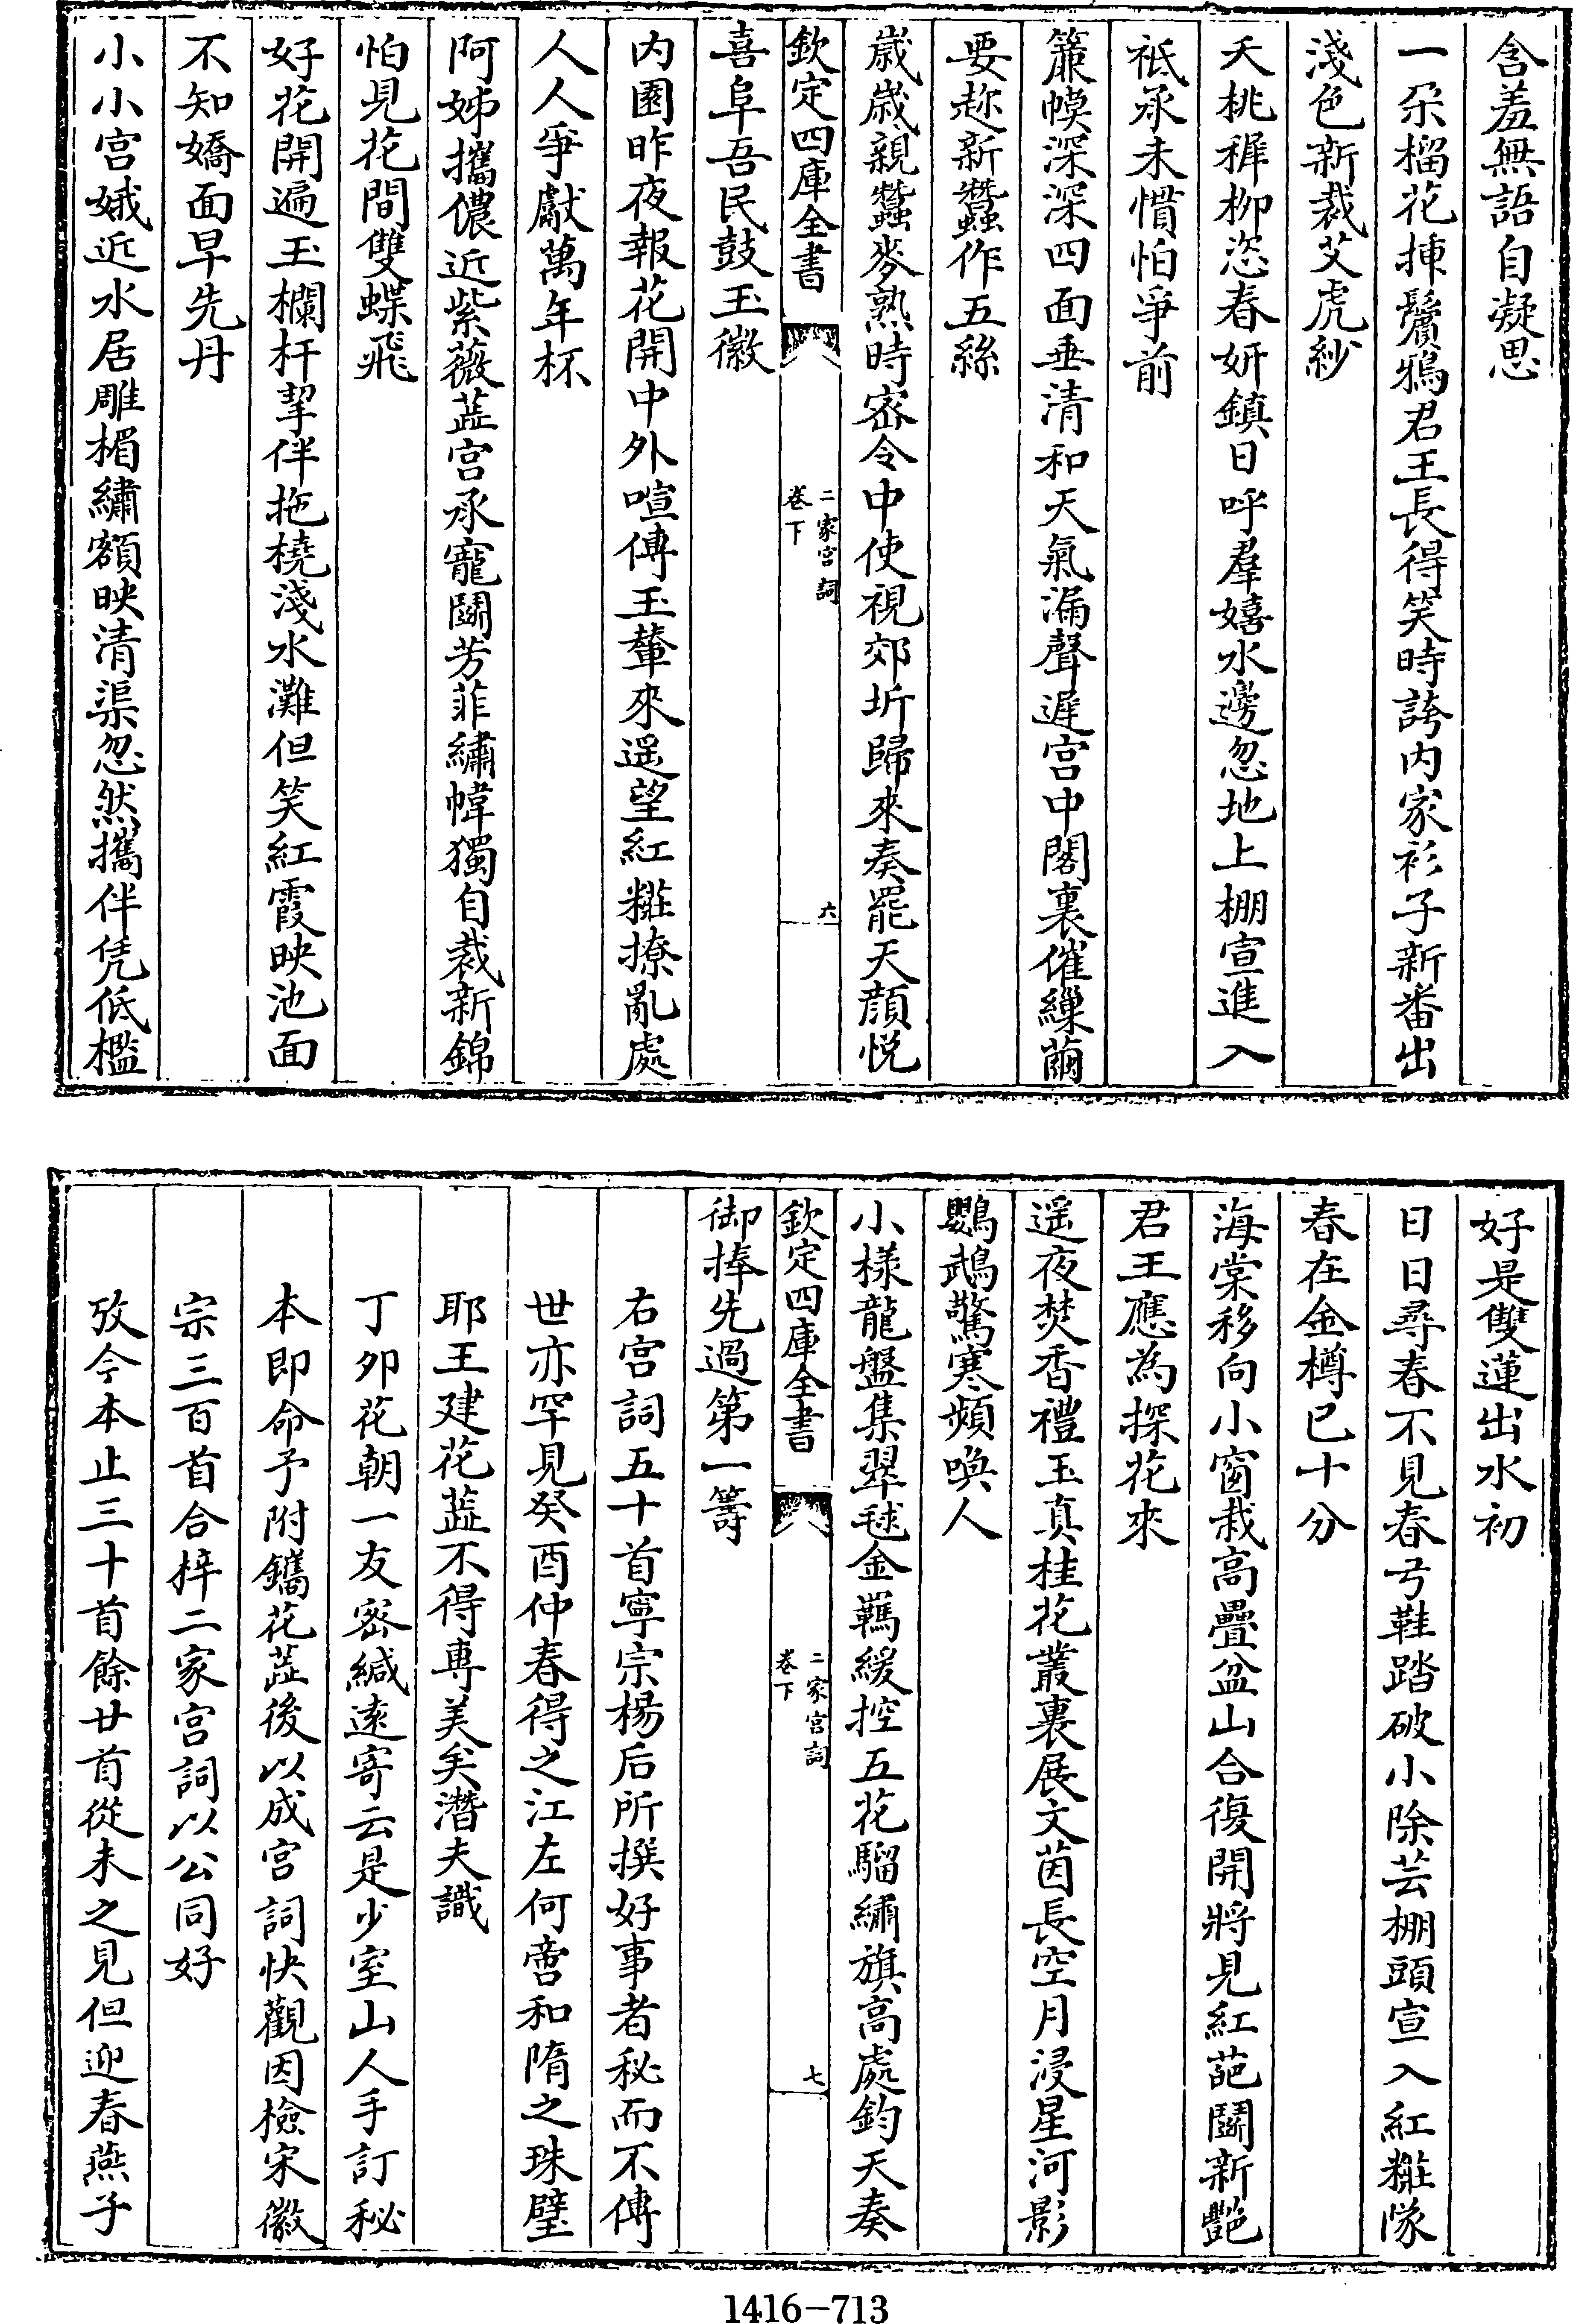 含羞無語自凝思
一朶榴花揷鬢鴉君王長得笑時誇内家衫子新番出
淺色新裁艾虎紗
夭桃穉柳恣春妍鎮日呼羣嬉水邊忽地上棚宣進入
祗承未慣怕爭前
簾幙深深四面垂清和天氣漏聲遲宫中閣裏催繅繭
要趂新蠶作五絲
歲歲親蠶麥熟時宻令中使視郊圻歸來奏罷天顔悦
欽定四庫全書
二家宫詞
卷下
六
喜阜吾民鼓玉徽
内園昨夜報花開中外喧傳玉輦來遥望紅糚撩亂處
人人爭獻萬年杯
阿姊攜儂近紫薇蕋宫承寵鬬芳菲繡幃獨自裁新錦
怕見花間雙蝶飛
好花開遍玉欄杆挈伴拖橈淺水灘但笑紅霞映池面
不知嬌面早先丹
小小宫娥近水居雕楣繡額映清渠忽然攜伴凭低檻
好是雙蓮出水初
日日尋春不見春弓鞋踏破小除芸棚頭宣入紅糚隊
春在金樽已十分
海棠移向小窗栽高疊盆山合復開將見紅葩鬬新艷
君王應為探花來
遥夜焚香禮玉真桂花叢裏展文茵長空月浸星河影
鸚鵡驚寒頻唤人
小様龍盤集翠毬金羈緩控五花騮繡旗高處鈞天奏
欽定四庫全書
二家宫詞
卷下
七
御捧先過第一籌
右宫詞五十首寧宗楊后所撰好事者秘而不傳
世亦罕見癸酉仲春得之江左何啻和隋之珠璧
耶王建花蕋不得專美矣潛夫識
丁夘花朝一友宻緘逺寄云是少室山人手訂秘
本即命予附鐫花蕋後以成宫詞快觀因檢宋徽
宗三百首合梓二家宫詞以公同好
攷今本止三十首餘廿首從未之見但迎春燕子
1416—713